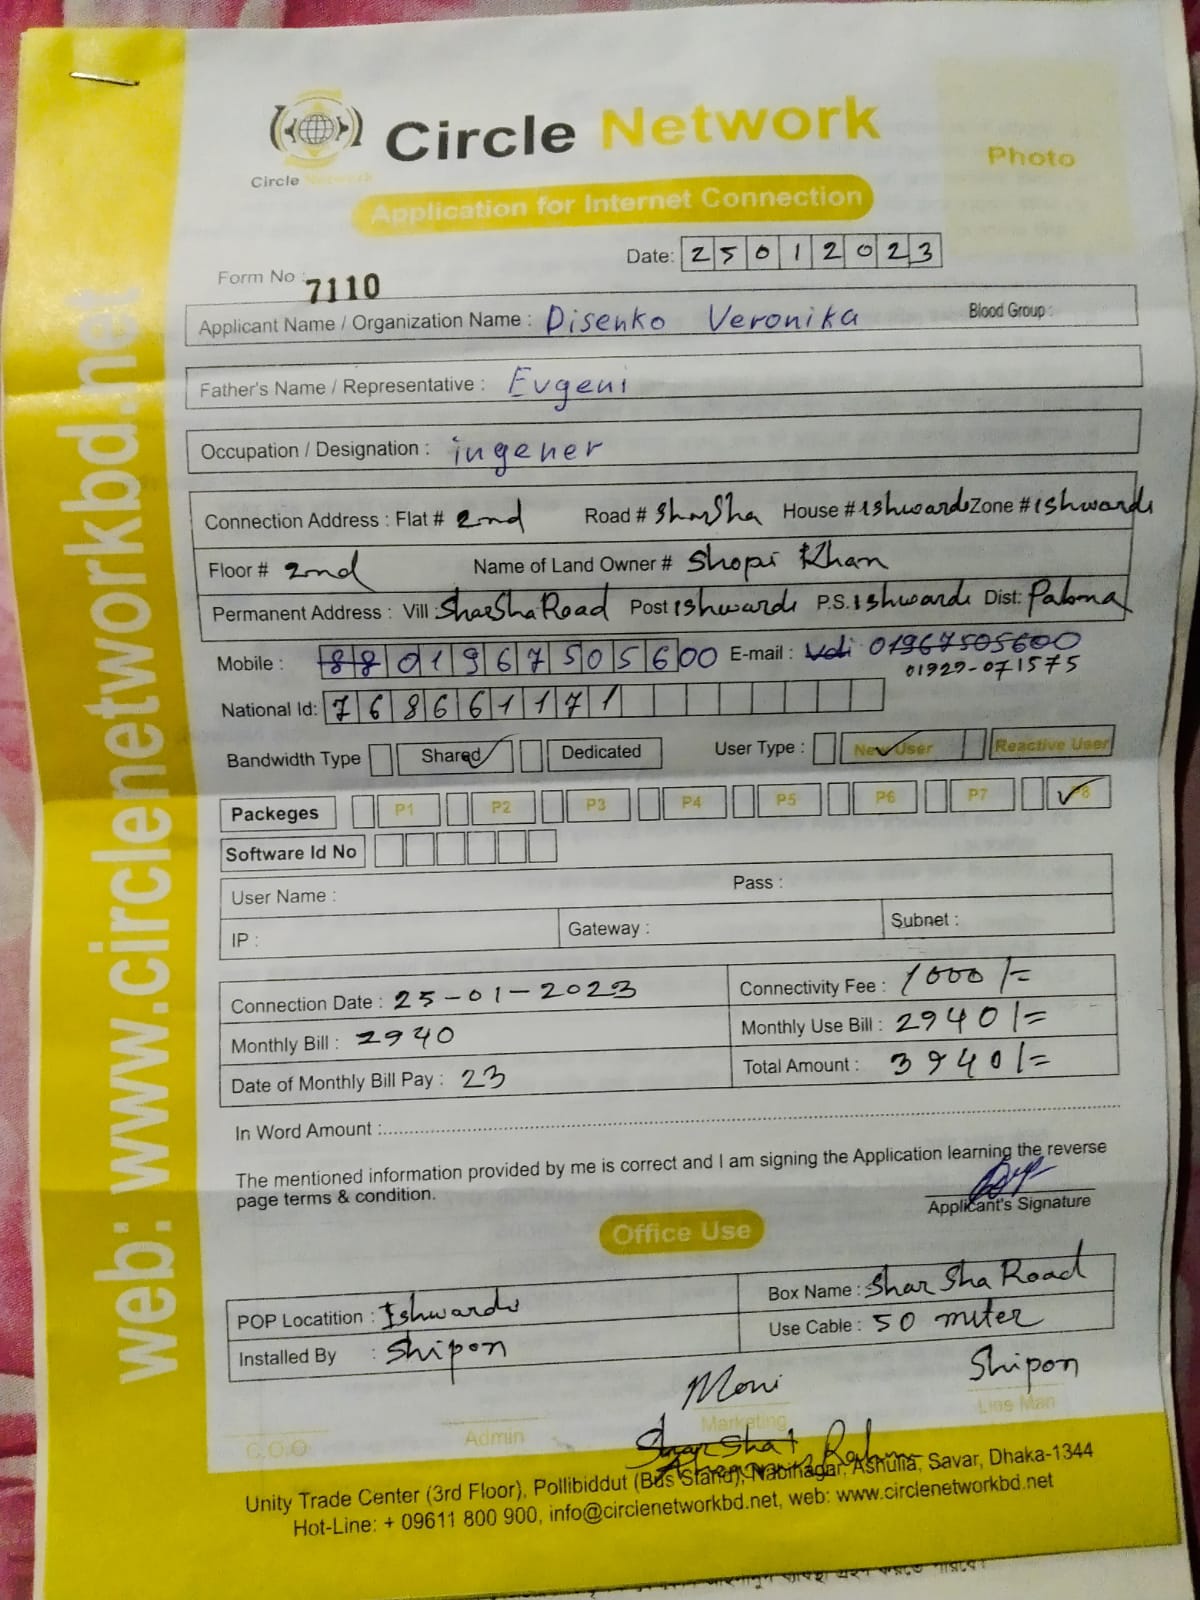 Circle Network
Circle Network
Photo
Application for Internet Connection
Date: 25012023
Form No : 7110
Applicant Name / Organization Name : Disenko Veronika Blood Group :
Father's Name / Representative : Evgeni
Occupation / Designation : ingener
Connection Address : Flat # 2nd Road # SharSha House # Ishwardi Zone # Ishwardi
Floor # 2nd Name of Land Owner # Shopi Khan
Permanent Address : Vill : SharSha Road Post Ishwardi P.S. Ishwardi Dist: Pabna
Mobile : 8801967505600 E-mail : 01967505600
01929-071575
National Id: 768661171
Bandwidth Type Shared Dedicated User Type : New User Reactive User
Packeges P1 P2 P3 P4 P5 P6 P7 P8
Software Id No
User Name : Pass :
IP : Gateway : Subnet :
Connection Date : 25-01-2023 Connectivity Fee : 1000/=
Monthly Bill : 2940 Monthly Use Bill : 2940/=
Date of Monthly Bill Pay : 23 Total Amount : 3940/=
In Word Amount :
The mentioned information provided by me is correct and I am signing the Application learning the reverse
page terms & condition.
Applicant's Signature
Office Use
POP Locatition : Ishwardi Box Name : Shar Sha Road
Installed By : Shipon Use Cable : 50 miter
Moni Shipon
C.O.O Admin Marketing Line Man
Unity Trade Center (3rd Floor), Pollibiddut (Bus Stand), Nabinagar, Ashulia, Savar, Dhaka-1344
Hot-Line: + 09611 800 900, info@circlenetworkbd.net, web: www.circlenetworkbd.net
web: www.circlenetworkbd.net